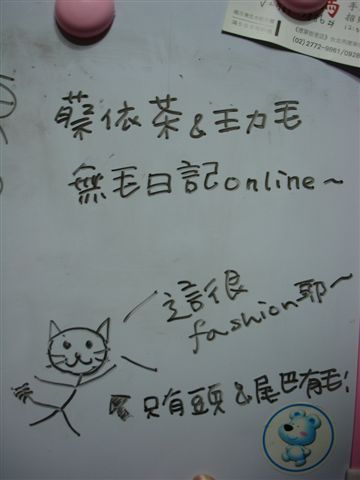 蔡依茶&王力毛
無毛日記online~
這很
fashion耶~
只有頭&尾巴有毛!
(02)2772-9861/0928